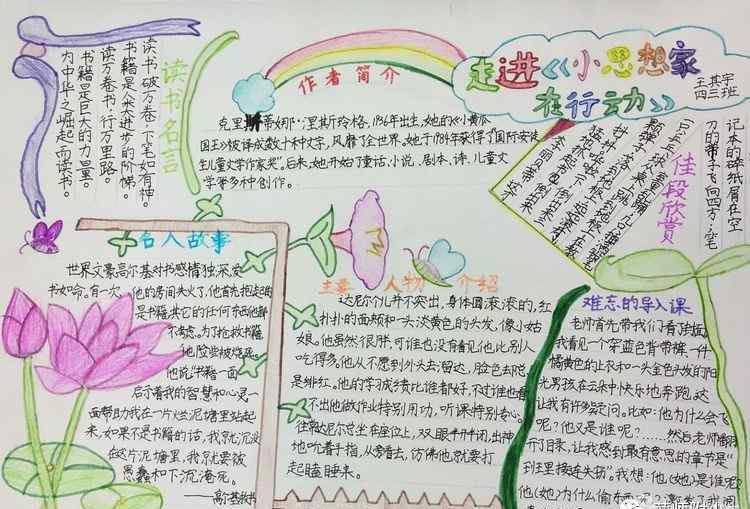 走进《小思想家
在行动》
王其宇
四三班
读书名言
读书破万卷,下笔如有神。
书籍是人类进步的阶梯。
读万卷书,行万里路。
书籍是巨大的力量。
为中华之崛起而读书。
作者简介
克里斯蒂娜·涅斯玲格,1936年出生,她的《小黄瓜
国王》被译成数十种文字,风靡了全世界。她于1984年获得了"国际安徒
生儿童文学作家奖"。后来,她开始了童话、小说、剧本、诗、儿童文
学等多种创作。
佳段欣赏
记本的碎纸屑在空
刀的带子飞向四方,笔
名人故事
世界文豪高尔基对书感情独深,爱
书如命。有一次,他的房间失火了,他首先抱起的
是书籍,其它的任何东西他都
不考虑。为了抢救书籍
他险些被烧死
他说"书籍一面
启示着我的智慧和心灵一
面帮助我在一片烂泥塘里站起
来,如果不是书籍的话,我就沉没
在这片泥塘里,我就要被
愚蠢和下沉淹死。
——高尔基救书
主要人物介绍
达尼尔个儿并不突出,身体圆滚滚的,红
扑扑的面颊和一头淡黄色的头发,像小姑
娘。他虽然很胖,可谁也没有看见他比别人
吃得多。他从不愿到外头去溜达,脸色去总
是绯红。他的学习成绩比谁都好,不过谁也看
不出他做作业特别用功,听课特别专心。
往常达尼尔总坐在座位上,双眼半开半闭,出神
地吮着手指,从旁看去,仿佛他就要打
起瞌睡来。
难忘的导入课
老师首先带我们看了封面,
我看见一个穿蓝色背带裤、一件
橘黄色的上衣和一头金色卷发的阳
光男孩在云朵中快乐地奔跑。这
让我有许多疑问。比如:他为什么会飞
呢?他又是谁呢?……然后老师翻
开了目录,让我感到最有意思的章节是"
班里接连失窃"。我想:他(她)是谁呢?
他(她)为什么偷东西呢?